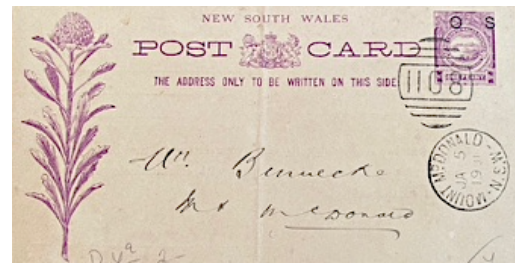 NEW SOUTH WALES
POST CARD
THE ADDRESS ONLY TO BE WRITTEN ON THIS SIDE
O S
ONE PENNY
1108
MOUNT McDONALD - N.S.W.
JA 5
Mt McDonald